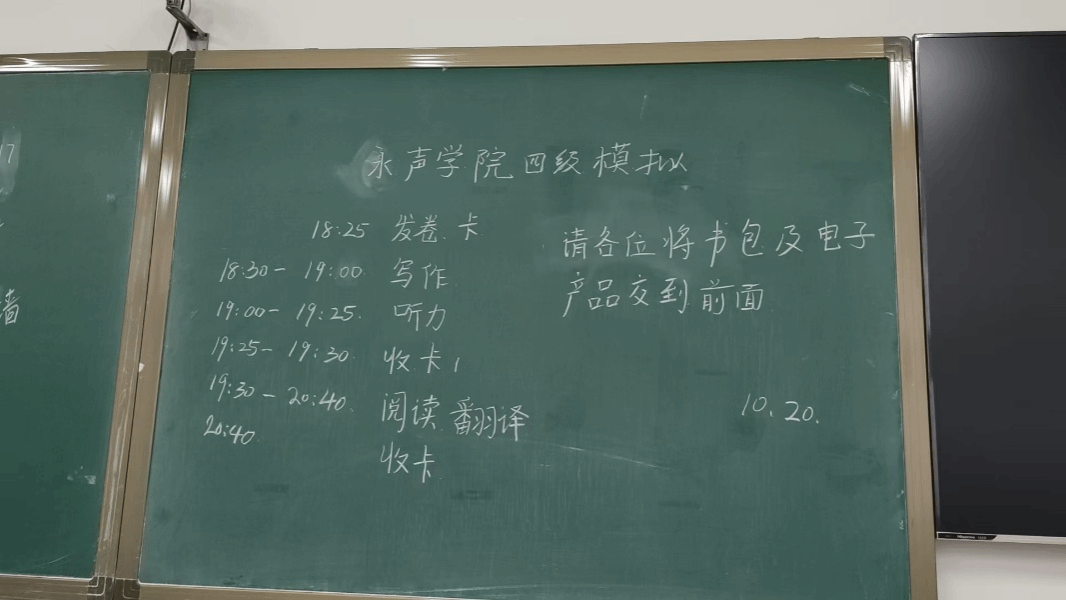 17
墙
永声学院四级模拟
18:25 发卷.卡
18:30- 19:00. 写作
19:00- 19:25. 听力
19:25- 19:30. 收卡1
19:30-20:40. 阅读.翻译
20:40. 收卡
请各位将书包及电子
产品交到前面.
10.20.
Hisense